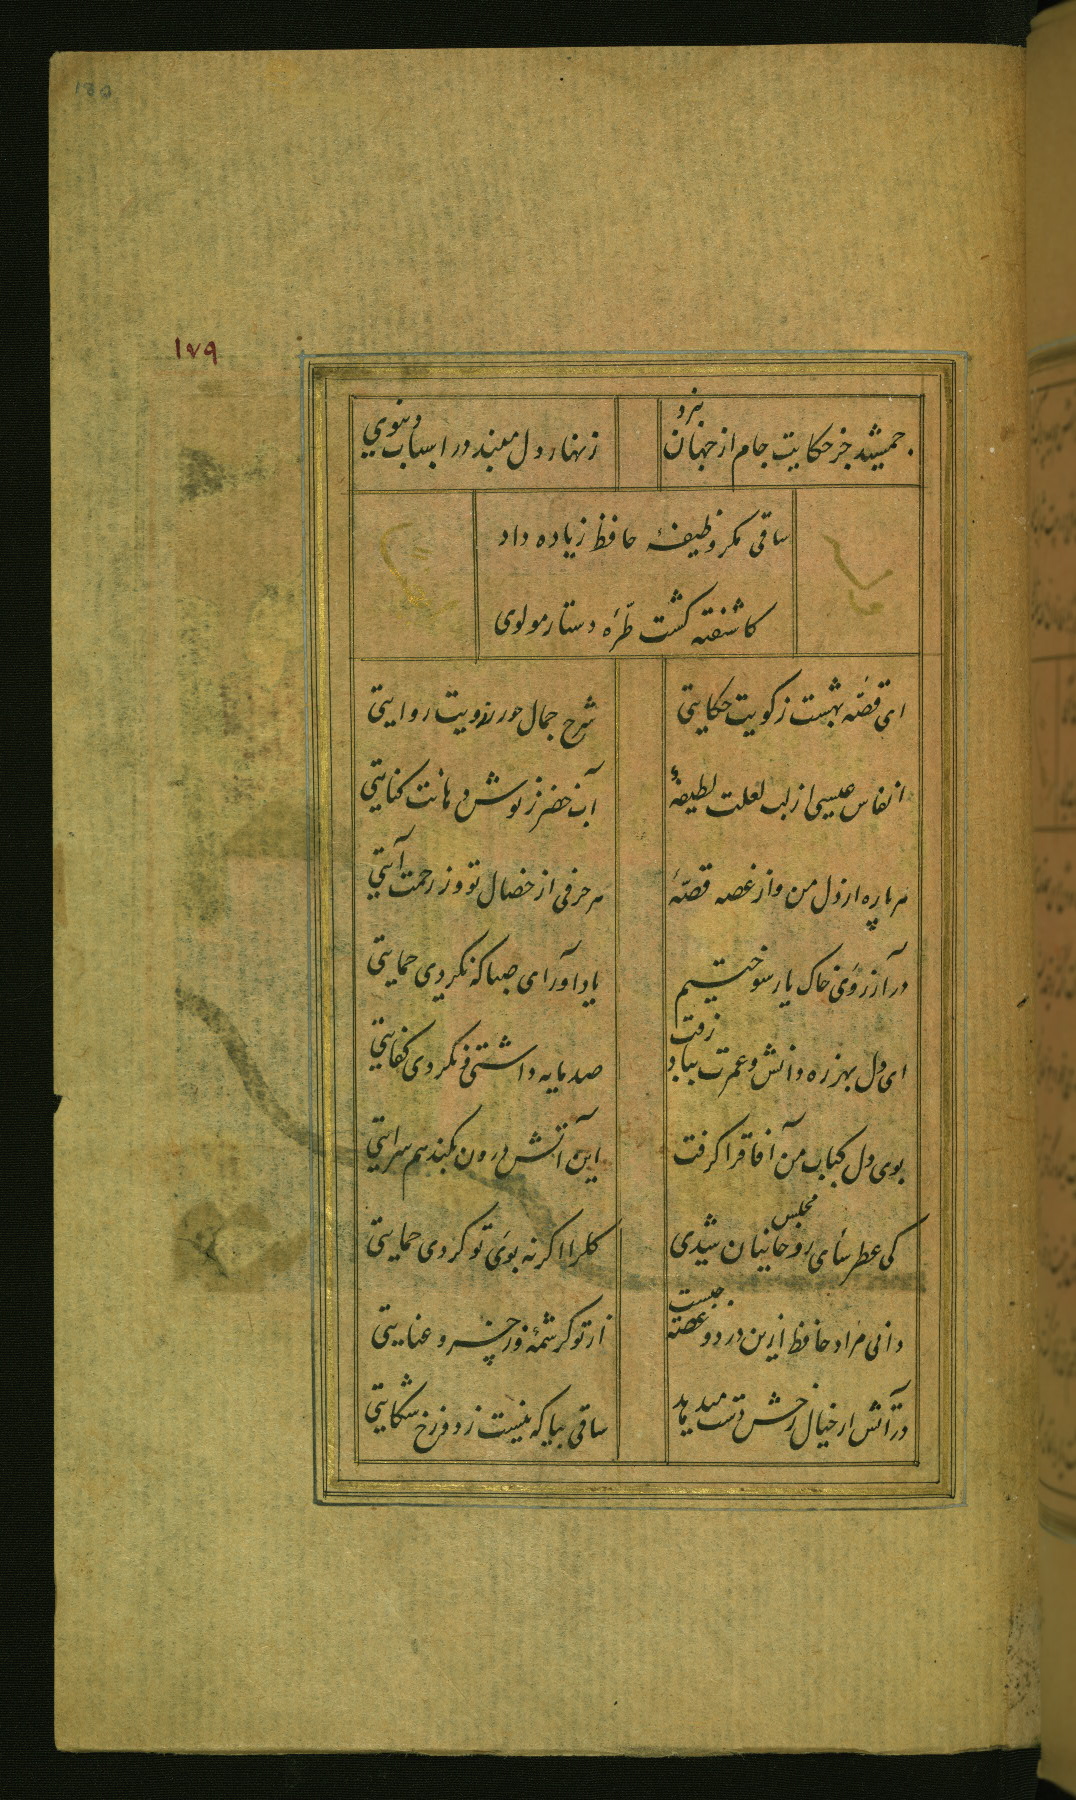 180
۱۷۹
جمشید جز حکایت جام از جهان نبرد
زنهار دل مبند در اسباب دنیوی
ساقی مگر وظیفهٔ حافظ زیاده داد
کاشفته گشت طرّهٔ دستار مولوی
ای قصّه بهشت ز کویت حکایتی
شرح جمال حور ز رویت روایتی
انفاس عیسی از لب لعلت لطیفهٔ
آب خضر ز نوش دهانت کنایتی
هر پاره از دل من و از غصه قصّهٔ
هر حرفی از خصال تو وز رحمت آیتی
در آرزوی خاک یار سوختیم
یاد آور ای صبا که نکردی حمایتی
ای دل بهرزه دانش و عمرت بباد رفت
صد مایه داشتی و نکردی کفایتی
بوی دل کباب من آفاق را گرفت
این آتش درون بکند هم سرایتی
کی عطرسای مجلس روحانیان شدی
گل را اگر نه بوی تو کردی حمایتی
دانی مراد حافظ ازین درد و غصّه چیست
از تو کرشمهٔ وز خسرو عنایتی
در آتش ار خیال رخش دست میدهد
ساقی بیا که نیست ز دوزخ شکایتی